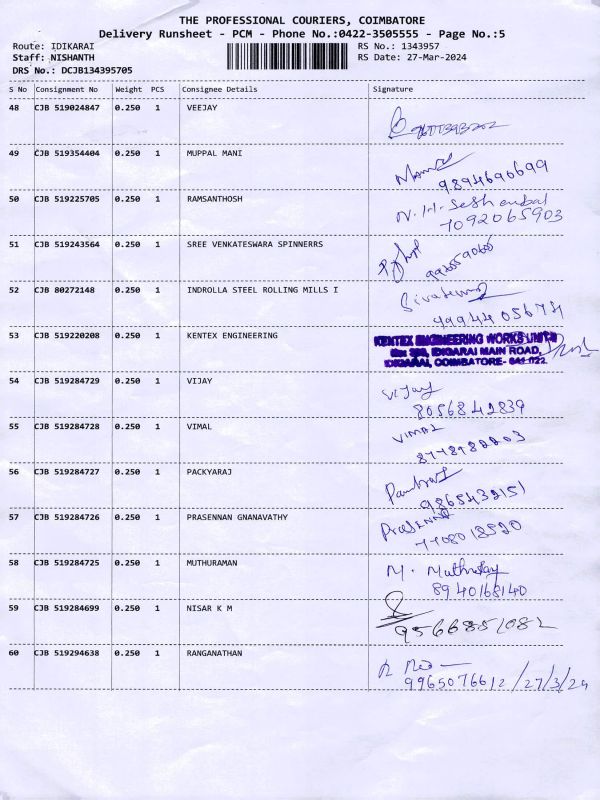 THE PROFESSIONAL COURIERS, COIMBATORE
Delivery Runsheet - PCM - Phone No.:0422-3505555 - Page No.:5
Route: IDIKARAI
RS No.: 1343957
Staff: NISHANTH
RS Date: 27-Mar-2024
DRS No.: DCJB134395705
S No Consignment No Weight PCS Consignee Details Signature
48 CJB 519024847 0.250 1 VEEJAY
49 CJB 519354404 0.250 1 MUPPAL MANI
9894690699
50 CJB 519225705 0.250 1 RAMSANTHOSH
7092065903
51 CJB 519243564 0.250 1 SREE VENKATESWARA SPINNERRS
52 CJB 80272148 0.250 1 INDROLLA STEEL ROLLING MILLS I
53 CJB 519220208 0.250 1 KENTEX ENGINEERING
KENTEX ENGINEERING WORKS
IDIGARAI MAIN ROAD,
IDIGARAI, COIMBATORE- 641 022.
54 CJB 519284729 0.250 1 VIJAY
Vijay
8056842839
55 CJB 519284728 0.250 1 VIMAL
VIMAL
56 CJB 519284727 0.250 1 PACKYARAJ
9865432151
57 CJB 519284726 0.250 1 PRASENNAN GNANAVATHY
7708018520
58 CJB 519284725 0.250 1 MUTHURAMAN
M.
8940168140
59 CJB 519284699 0.250 1 NISAR K M
9566851082
60 CJB 519294638 0.250 1 RANGANATHAN
9965076612 /27/3/24